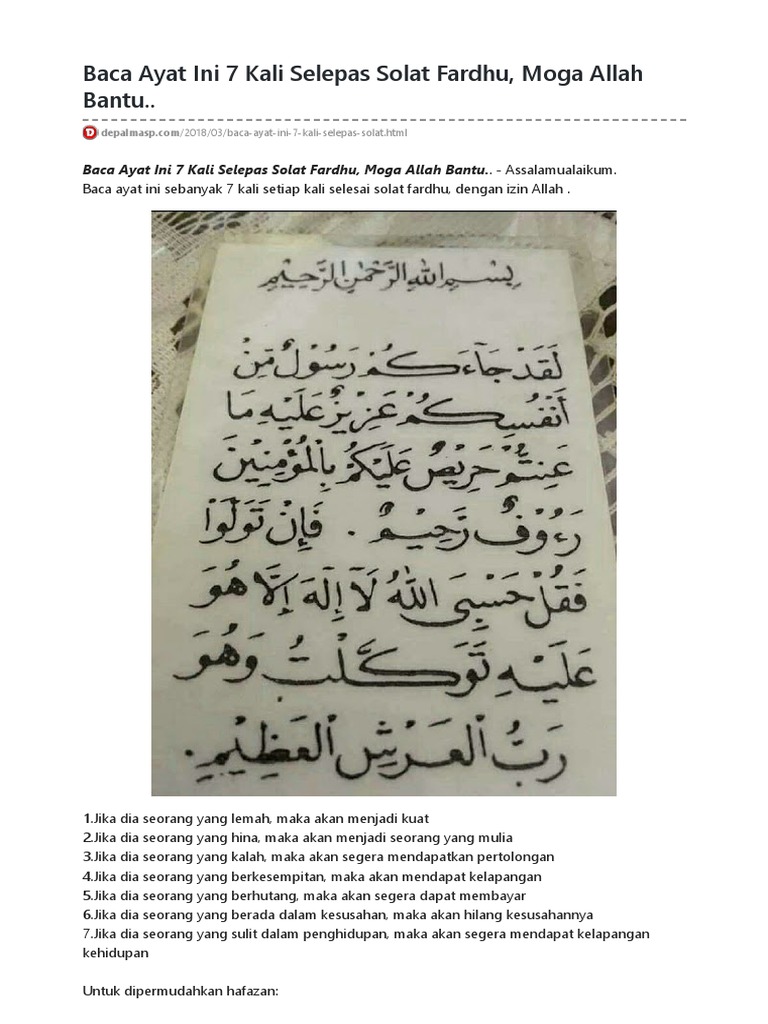 Baca Ayat Ini 7 Kali Selepas Solat Fardhu, Moga Allah
Bantu..
depalmasp.com/2018/03/baca-ayat-ini-7-kali-selepas-solat.html
Baca Ayat Ini 7 Kali Selepas Solat Fardhu, Moga Allah Bantu.. - Assalamualaikum.
Baca ayat ini sebanyak 7 kali setiap kali selesai solat fardhu, dengan izin Allah .
بِسْمِ اللهِ الرَّحْمٰنِ الرَّحِيْمِ
لَقَدْ جَآءَكُمْ رَسُوْلٌ مِّنْ
أَنْفُسِكُمْ عَزِيْزٌ عَلَيْهِ مَا
عَنِتُّمْ حَرِيْصٌ عَلَيْكُمْ بِالْمُؤْمِنِيْنَ
رَءُوْفٌ رَّحِيْمٌ . فَإِنْ تَوَلَّوْا
فَقُلْ حَسْبِيَ اللهُ لَآ إِلٰهَ إِلَّا هُوَ
عَلَيْهِ تَوَكَّلْتُ وَهُوَ
رَبُّ الْعَرْشِ الْعَظِيْمِ.
1.Jika dia seorang yang lemah, maka akan menjadi kuat
2.Jika dia seorang yang hina, maka akan menjadi seorang yang mulia
3.Jika dia seorang yang kalah, maka akan segera mendapatkan pertolongan
4.Jika dia seorang yang berkesempitan, maka akan mendapat kelapangan
5.Jika dia seorang yang berhutang, maka akan segera dapat membayar
6.Jika dia seorang yang berada dalam kesusahan, maka akan hilang kesusahannya
7.Jika dia seorang yang sulit dalam penghidupan, maka akan segera mendapat kelapangan
kehidupan
Untuk dipermudahkan hafazan: